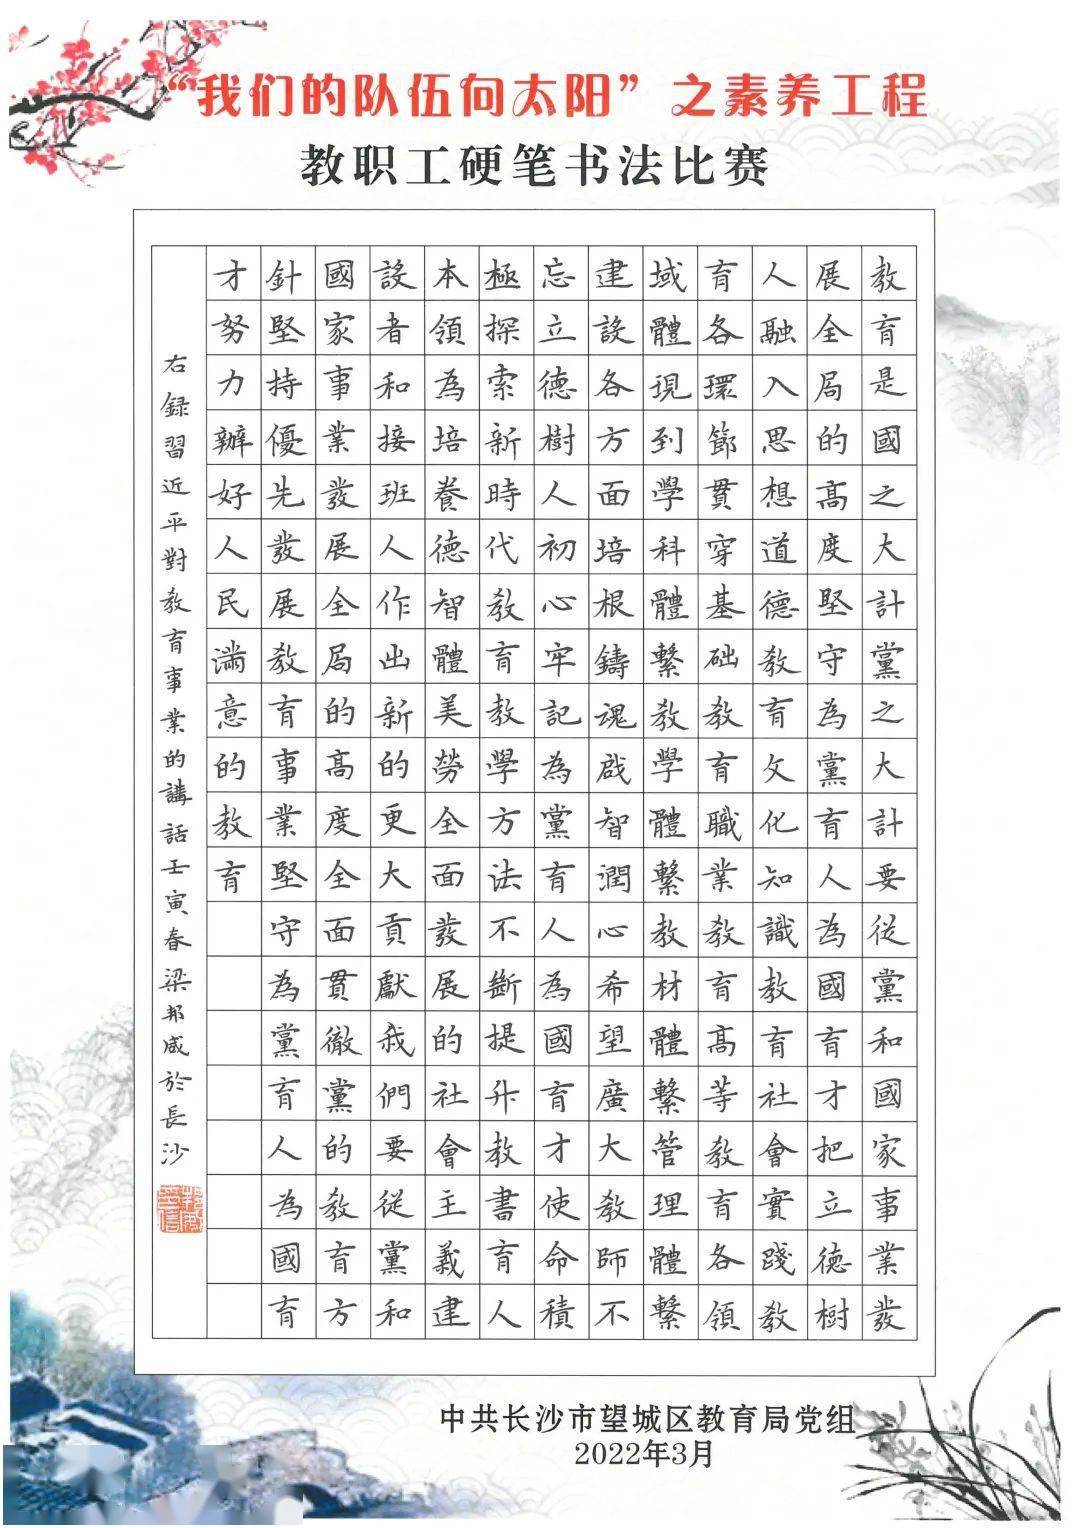 “我们的队伍向太阳”之素养工程
教职工硬笔书法比赛
教育是國之大計黨之大計要从黨和國家事業發
展全局的高度堅守為黨育人為國育才把立德樹
人融入思想道德教育文化知識教育社會實踐教
育各環節貫穿基础教育職業教育高等教育各領
域體現到學科體繫教學體繫教材體繫管理體繫
建設各方面培根鑄魂啟智潤心希望廣大教師不
忘立德樹人初心牢記為黨育人為國育才使命積
極探索新時代教育教學方法不斷提升教書育人
本領為培養德智體美勞全面發展的社會主義建
設者和接班人作出新的更大貢獻我們要從黨和
國家事業發展全局的高度全面貫徹黨的教育方
針堅持優先發展教育事業堅守為黨育人為國育
才努力辦好人民滿意的教育
右録習近平對教育事業的講話壬寅春梁邦威於長沙
中共长沙市望城区教育局党组
2022年3月